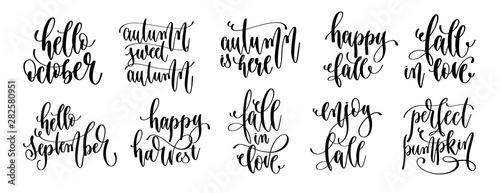 hello
october
autumn
sweet
autumn
autumn
is here
happy
fall
fall
in love
hello
september
happy
harvest
fall
in
love
enjoy
fall
perfect
pumpkin
Adobe Stock | #282580951